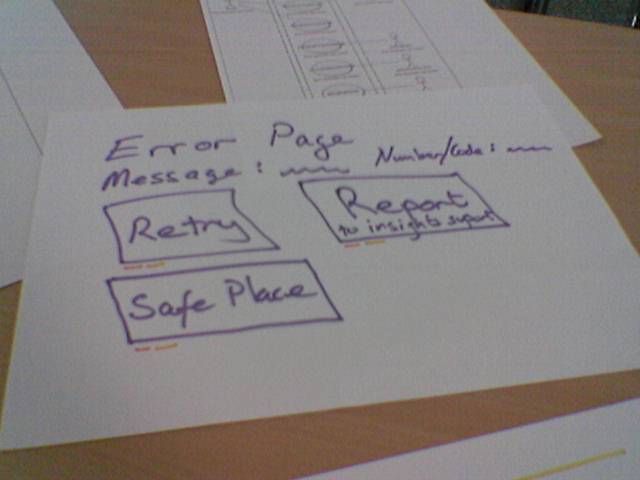 Error Page
Message: Number/Code:
Retry
Report
to insights suport
Safe Place